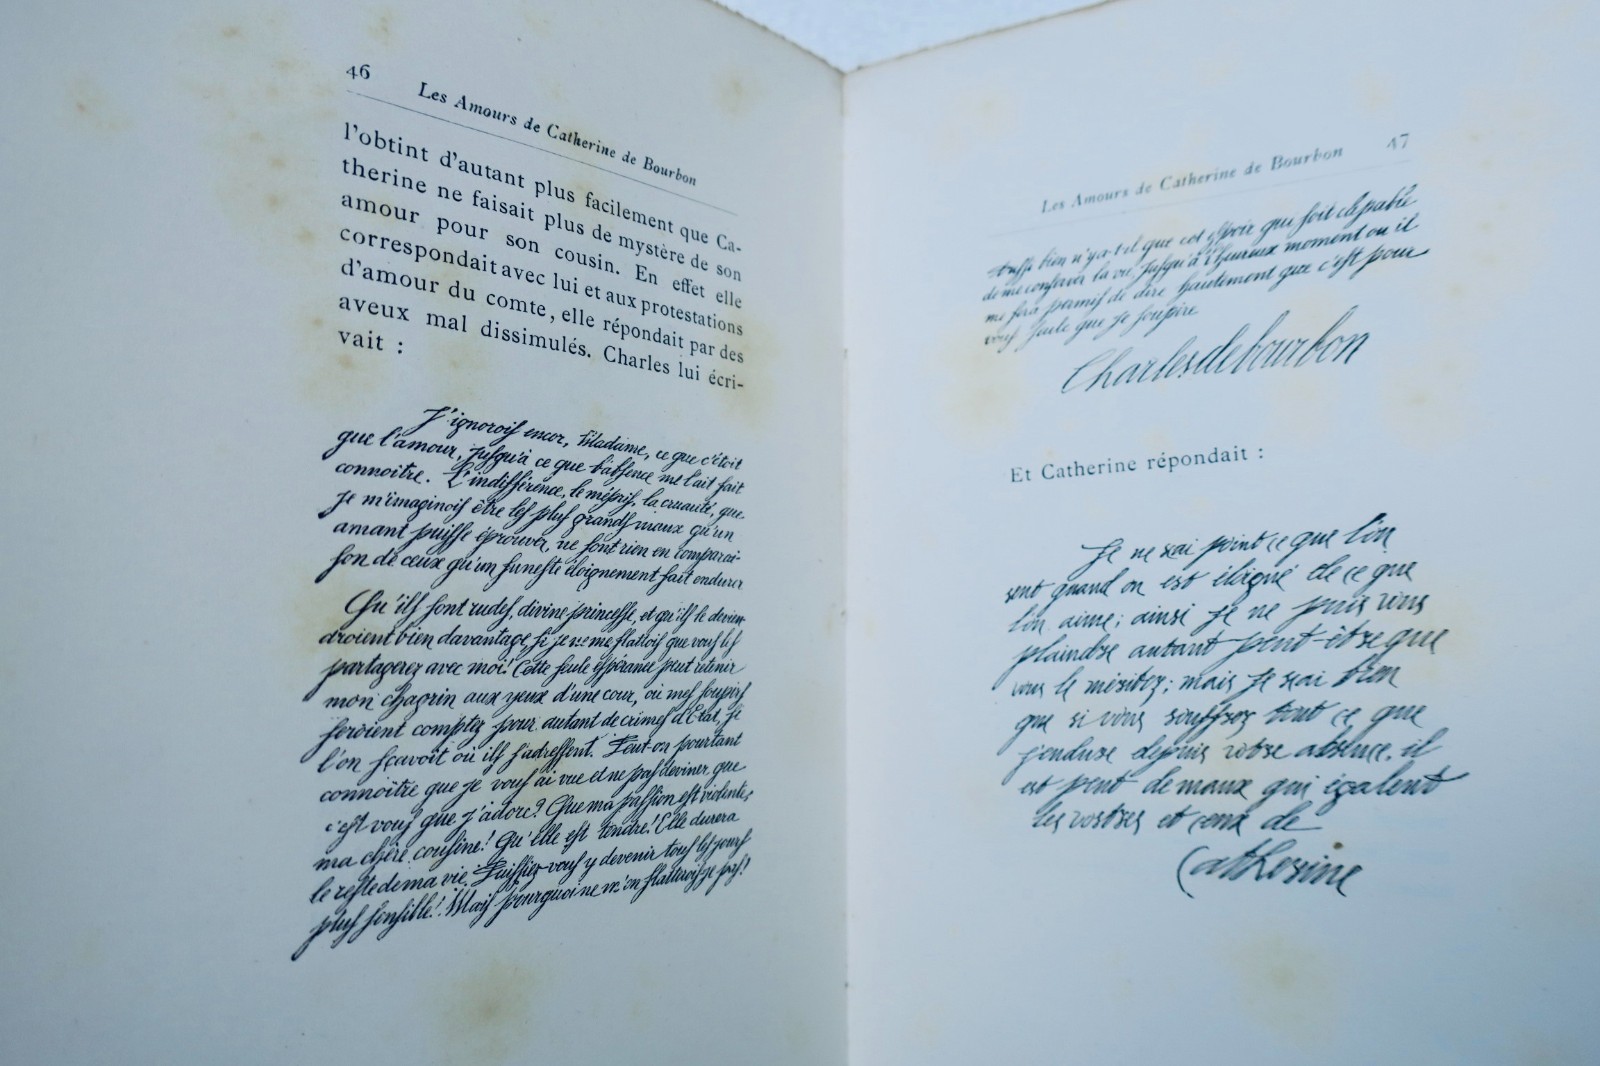 46
Les Amours de Catherine de Bourbon
l'obtint d'autant plus facilement que Ca-
therine ne faisait plus de mystère de son
amour pour son cousin. En effet elle
correspondait avec lui et aux protestations
d'amour du comte, elle répondait par des
aveux mal dissimulés. Charles lui écri-
vait :
J'ignorois encor, Madame, ce que c'étoit
que l'amour, jusqu'à ce que l'absence me l'ait fait
connoître. L'indifférence, le mépris, la cruauté, que
je m'imaginois être les plus grands maux qu'un
amant puisse éprouver, ne sont rien en comparai-
son de ceux qu'un funeste éloignement fait endurer
Qu'ils sont rudes, divine princesse, et qu'ils le devien-
droient bien davantage, si je ne me flattois que vous les
partagerez avec moi! Cette seule espérance peut retenir
mon chagrin aux yeux d'une cour, où mes soupirs
seroient comptez pour autant de crimes d'Etat, si
l'on sçavoit où ils s'adressent. Peut-on pourtant
connoître que je vous ai vue et ne pas deviner que
c'est vous que j'adore? Que ma passion est violente,
ma chère cousine! Qu'elle est tendre! Elle durera
le reste de ma vie. Puissiez-vous y devenir tous les jours
plus sensible! Mais pourquoi ne m'en flatterois-je pas?
Les Amours de Catherine de Bourbon
47
Aussi bien n'y a-t-il que cet espoir qui soit capable
de me conserver la vie, jusqu'à l'heureux moment où il
me sera permis de dire hautement que c'est pour
vous seule que je soupire
Charles de bourbon
Et Catherine répondait :
Je ne sai point ce que l'on
sent quand on est éloigné de ce que
l'on aime; ainsi je ne puis vous
plaindre autant peut-être que
vous le méritez; mais je sai bien
que si vous souffrez tout ce que
j'endure depuis votre absence, il
est peut de maux qui égalent
les vostres et ceux de
Catherine